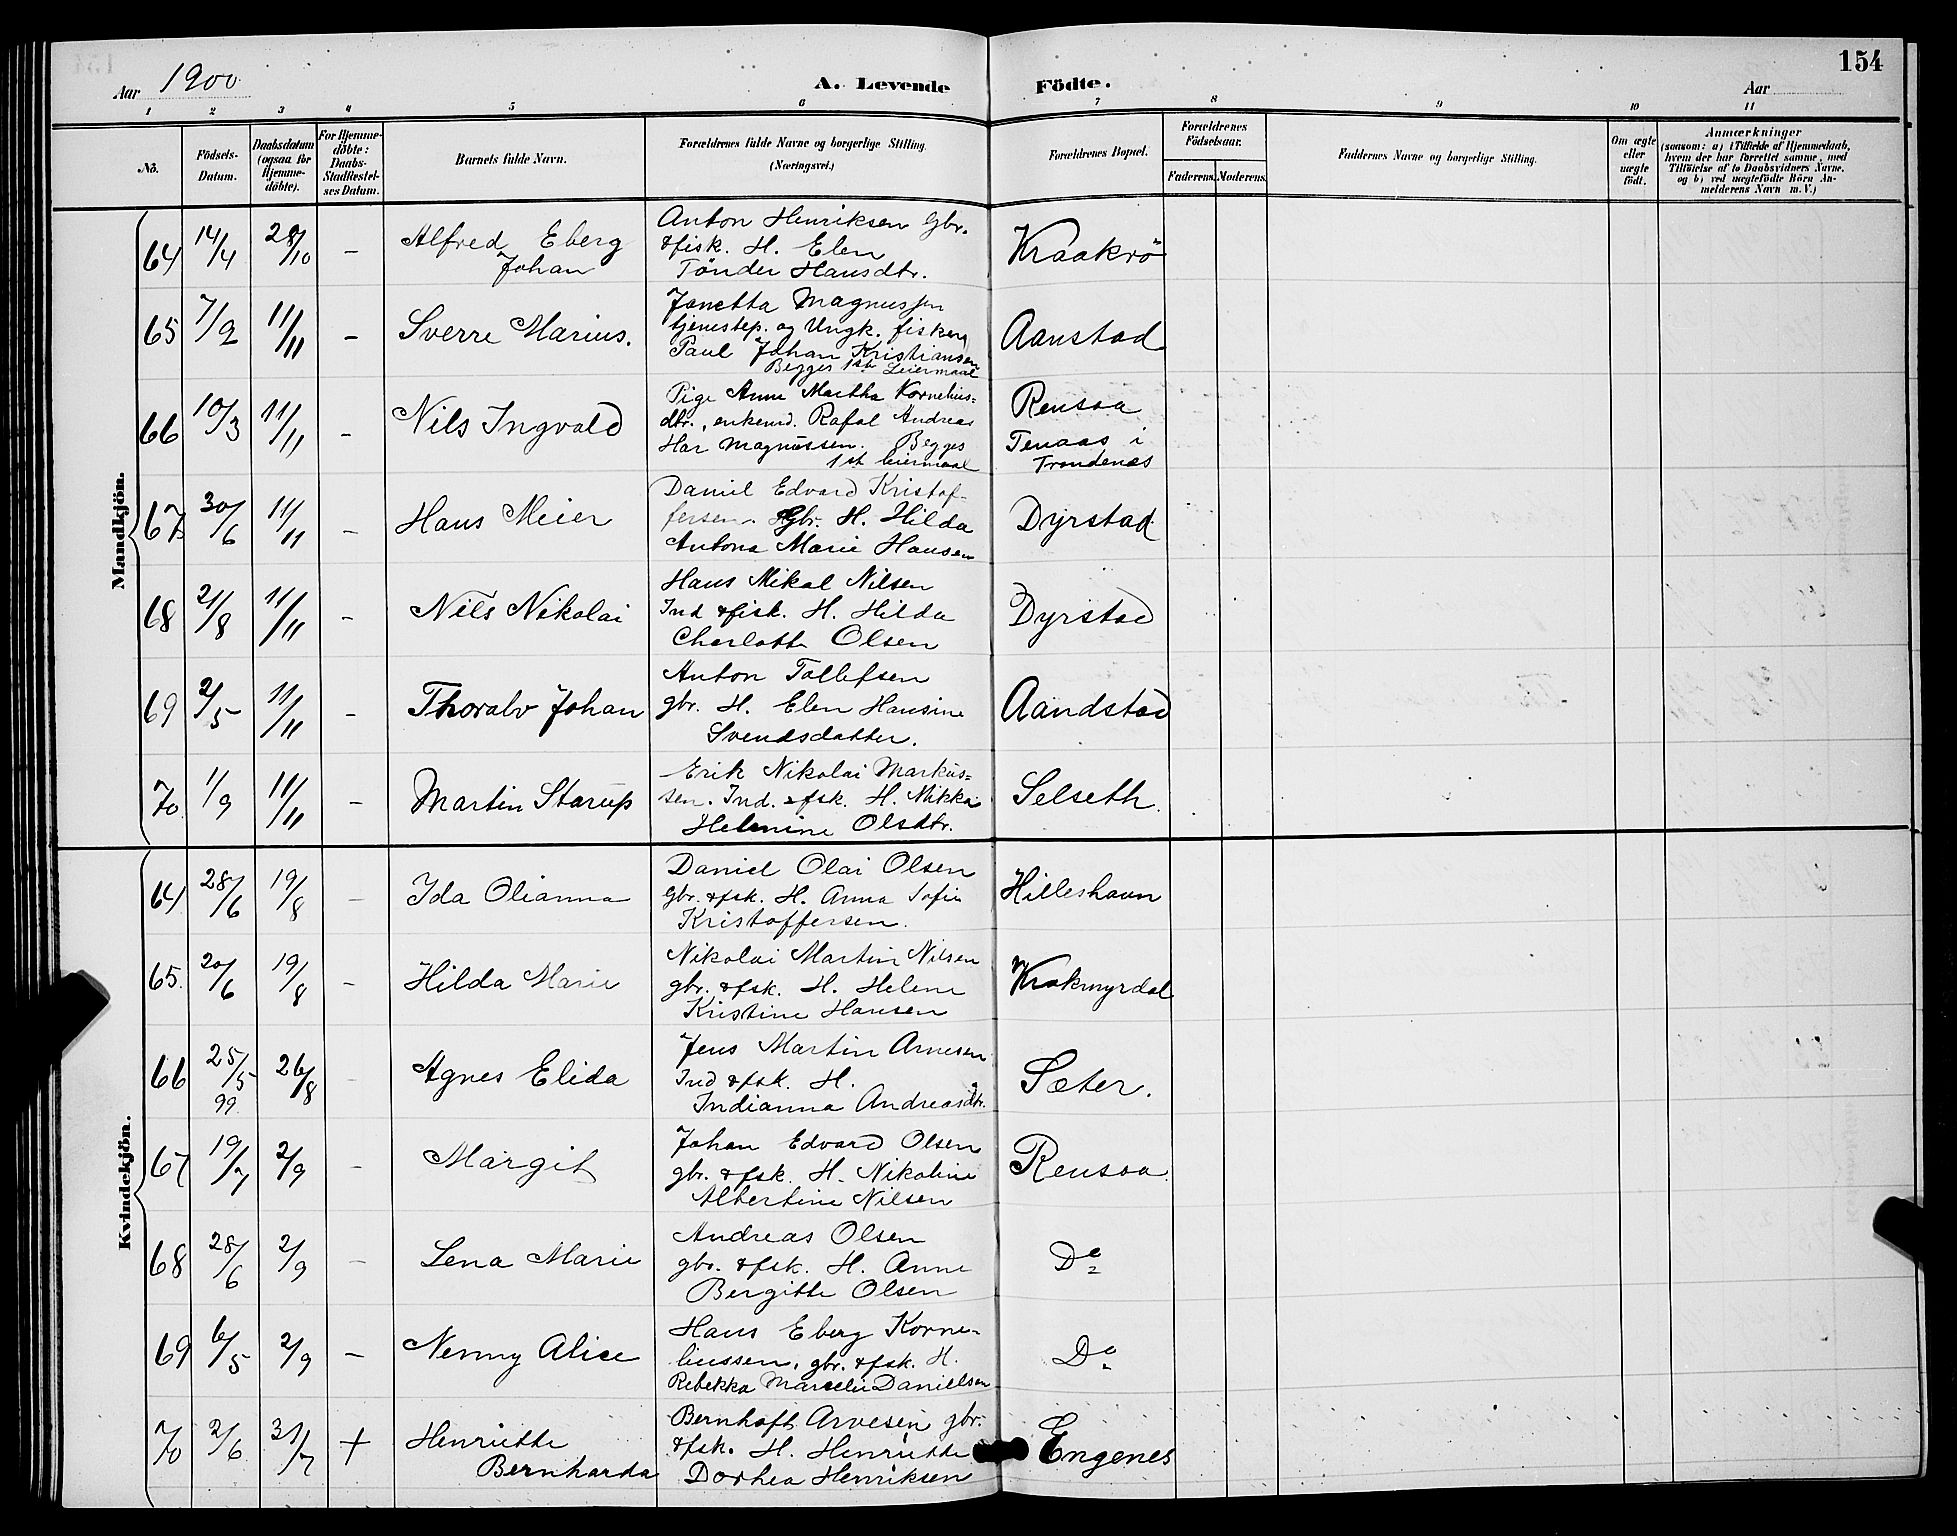 154
Aar 1900
A. Levende Födte.
Aar
1 2 3 4 5 6 7 8 9 10 11
Nô.
Födsels-Datum.
Daabsdatum (ogsaa for Hjemme-döbte).
For Hjemme-döbte: Daabs-Stadfæstel-ses Datum.
Barnets fulde Navn.
Forældrenes fulde Navne og borgerlige Stilling.
(Næringsvei.)
Forældrenes Bopæl.
Forældrenes Födselsaar.
Faderens. Moderens.
Faddernes Navne og borgerlige Stilling.
Om ægte eller uægte födt.
Anmærkninger
(saasom: a) i Tilfælde af Hjemmedaab,
hvem der har forrettet samme, med
Tilföielse af to Daabsvidners Navne.
og b) ved uægtefödte Börn An-
melderens Navn m. V.)
Mandkjön.
64 14/4 28/10 – Alfred Eberg
Johan
Anton Henriksen Gbr.
& fisk. H. Elen
Tönder Hansdtr.
Kraakrö
65 7/9 11/11 – Sverre Marius.
Janetta Magnussen
tjenestep. og Ungk. fisker
Paul Johan Kristiansen
Begges 1ste Leiermaal
Aanstad
66 10/3 11/11 – Nils Ingvald
Pige Anne Martha Kornelius-
dtr., enkemd. Rafal Andreas
Har Magnussen. Begges
1st leiermaal
Rensaa
Tenaas i
Trondenæs
67 30/6 11/11 – Hans Meier
Daniel Edvard Kristof-
fersen. Gbr. H. Hilda
Antona Marie Hansen
Dyrstad
68 21/8 11/11 – Nils Nikolai
Hans Mikal Nilsen
Ind & fisk. H. Hilda
Charlotte Olsen
Dyrstad
69 2/5 11/11 – Thoralv Johan
Anton Tollefsen
gbr. H. Elen Hansine
Svendsdatter.
Aandstad
70 1/9 11/11 – Martin Starup
Erik Nikolai Markus-
sen. Ind. & fsk. H. Mikka
Helmine Olsdtr.
Selseth.
Kvindekjön.
64 28/6 19/8 – Ida Olianna
Daniel Olai Olsen
Gbr. & fsk. H. Anna Sofie
Kristoffersen.
Hilleshavn
65. 20/6 19/8 – Hilda Marie
Nikolai Martin Nilsen
gbr. & fsk. H. Helene
Kristine Hansen
Krakmyrdal
66 25/5 99 26/8 – Agnes Elida
Jens Martin Arnesen
Ind & fsk. H.
Indianna Andreasdtr.
Sæter.
67 19/7 2/9 – Margit
Johan Edvard Olsen
gbr. & fsk. H. Nikoline
Albertine Nilsen
Rensaa
68 28/6 2/9 – Lena Marie
Andreas Olsen
gbr. & fsk. H. Anne
Bergitte Olsen
Do
69 6/5 2/9 – Nenny Alice
Hans Eberg Korne-
liussen, gbr. & fsk. H.
Rebekka Marselie Danielsen
Do
70 2/6 31/7 + Henriette
Bernharda
Bernhoft Arvesen gbr.
& fsk. H. Henriette
Dorhea Henriksen
Engenes